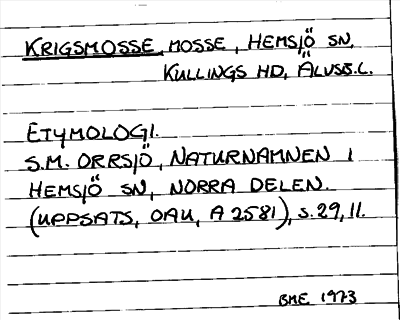 KRIGSMOSSE, MOSSE, HEMSJÖ SN,
KULLINGS HD, ÄLVSB.L.
ETYMOLOGI.
S.M. ORRSJÖ, NATURNAMNEN I
HEMSJÖ SN, NORRA DELEN.
(UPPSATS, OAU, A 2581), S.29, 11.
BME 1973